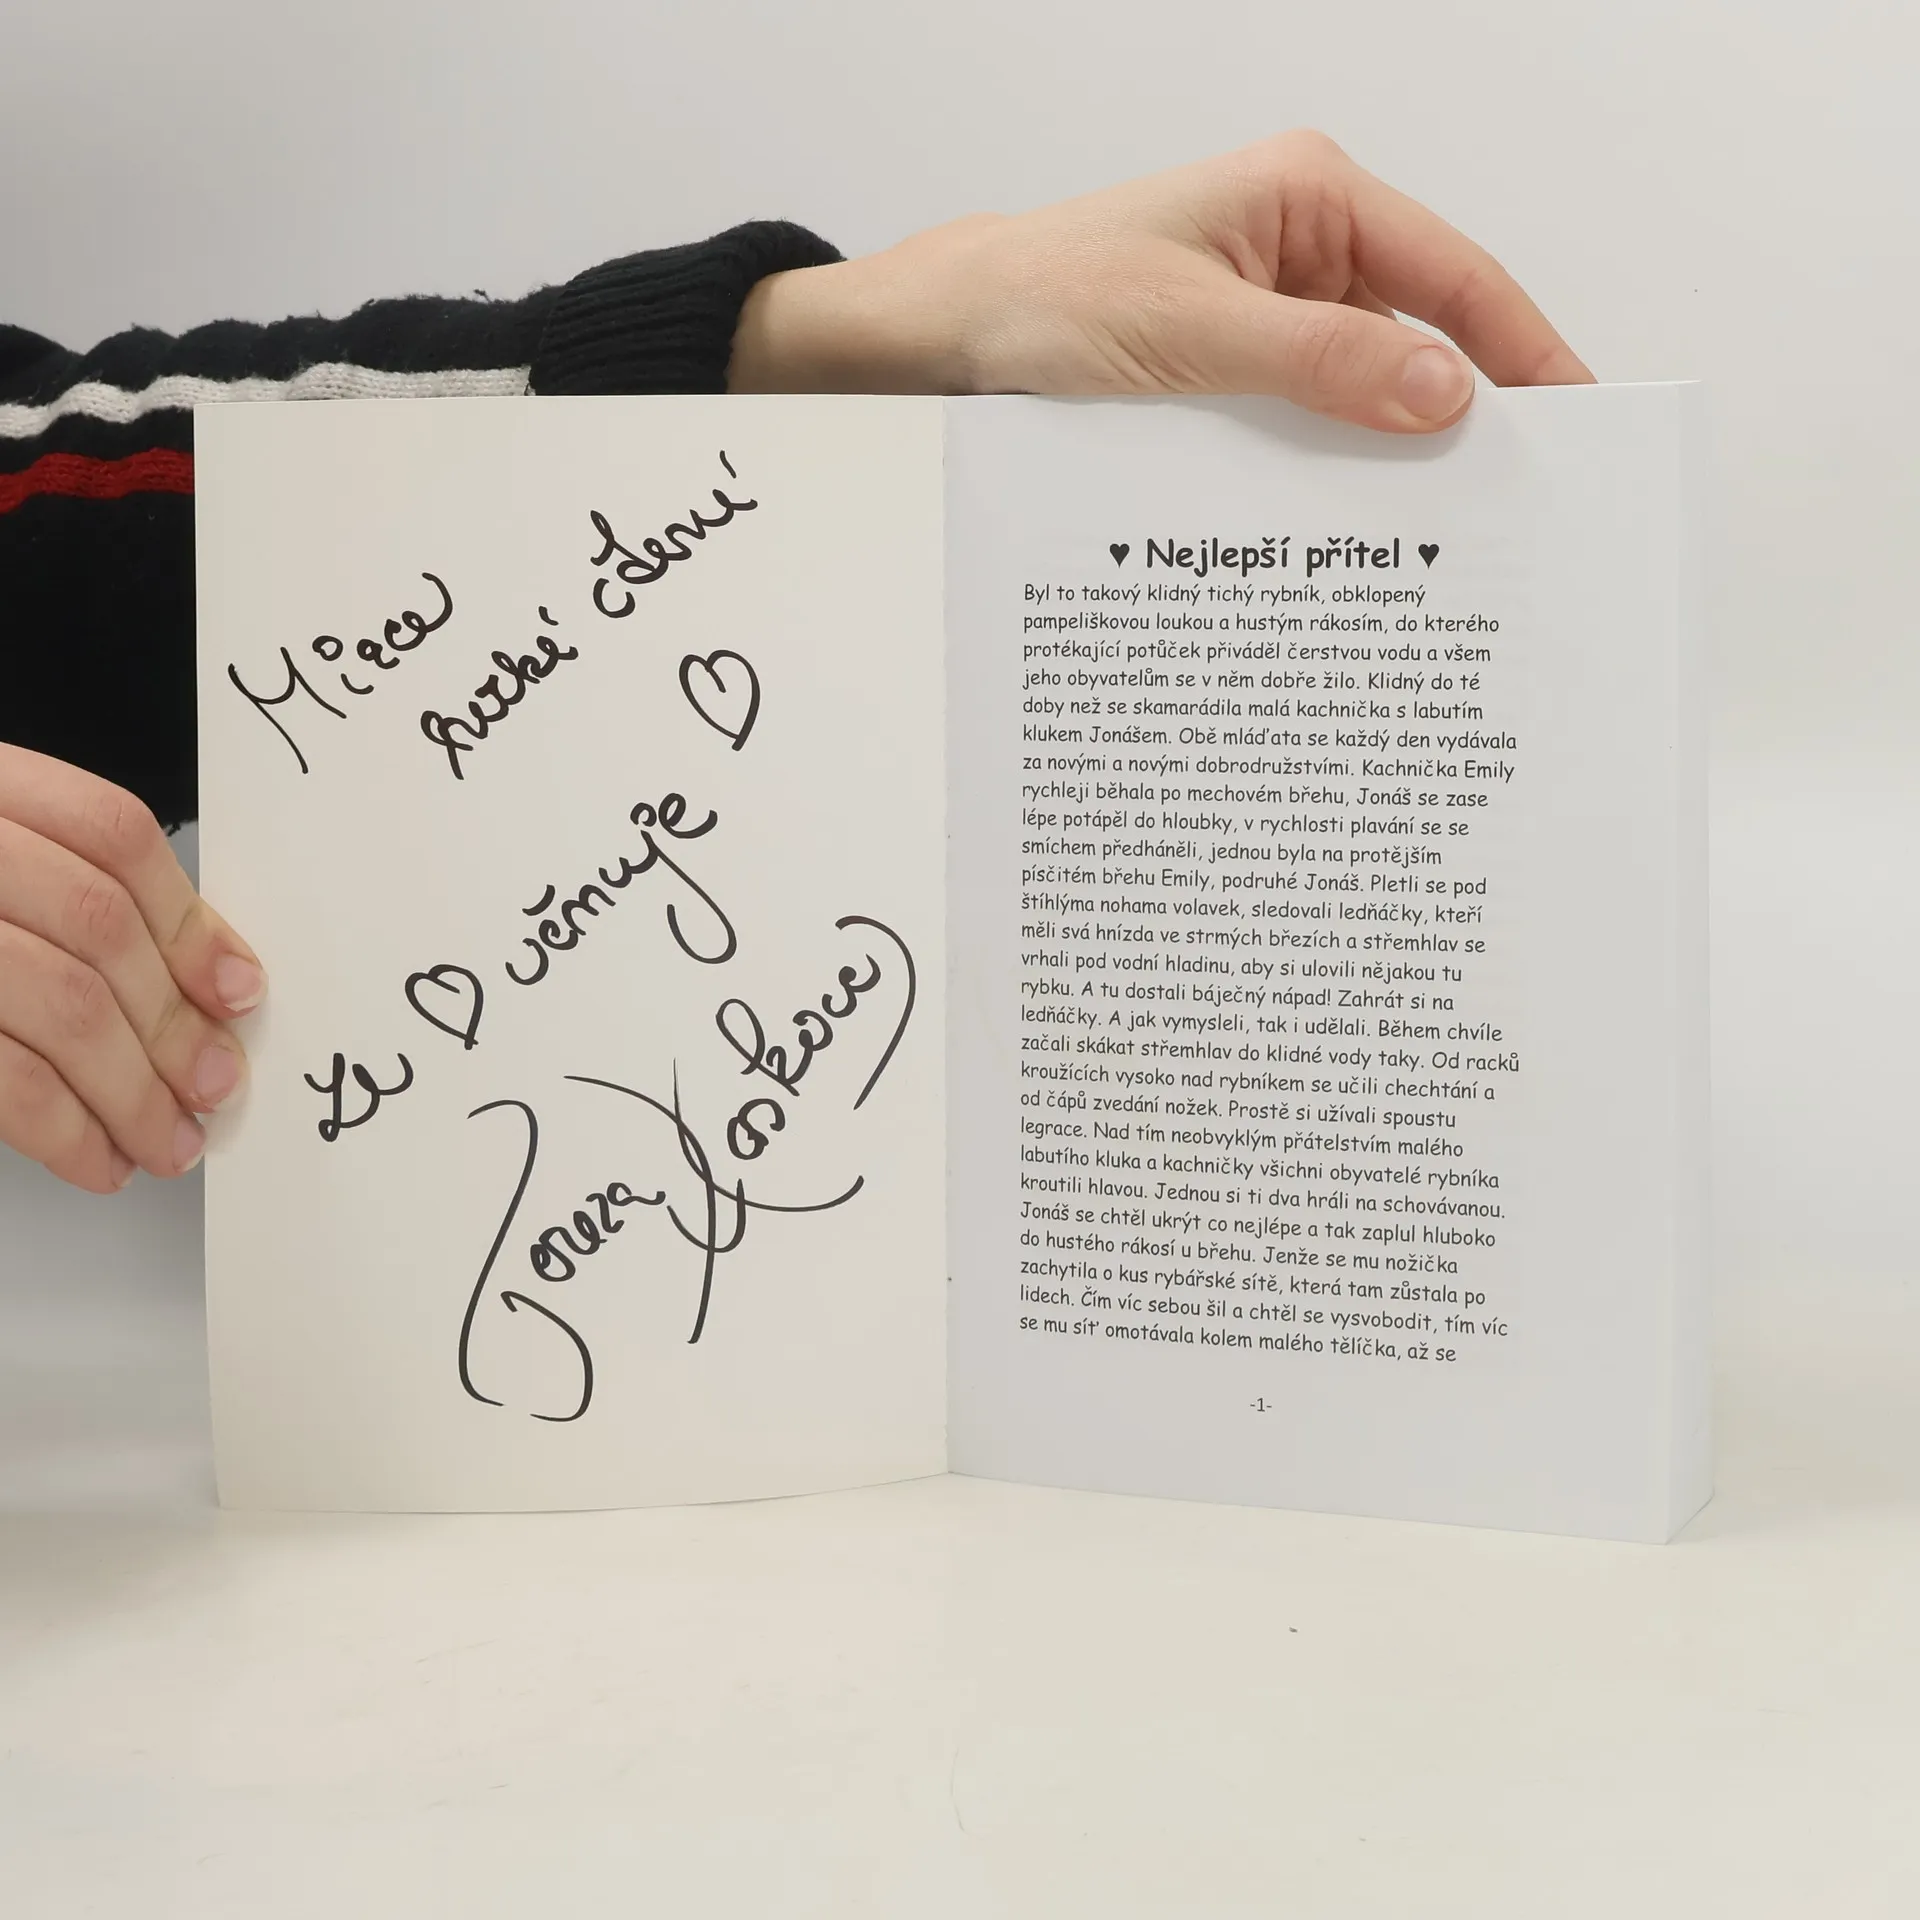 Mirce
hezké čtení
Ze ♡ věnuje
Tereza
♥ Nejlepší přítel ♥
Byl to takový klidný tichý rybník, obklopený
pampeliškovou loukou a hustým rákosím, do kterého
protékající potůček přiváděl čerstvou vodu a všem
jeho obyvatelům se v něm dobře žilo. Klidný do té
doby než se skamarádila malá kachnička s labutím
klukem Jonášem. Obě mláďata se každý den vydávala
za novými a novými dobrodružstvími. Kachnička Emily
rychleji běhala po mechovém břehu, Jonáš se zase
lépe potápěl do hloubky, v rychlosti plavání se se
smíchem předháněli, jednou byla na protějším
písčitém břehu Emily, podruhé Jonáš. Pletli se pod
štíhlýma nohama volavek, sledovali ledňáčky, kteří
měli svá hnízda ve strmých březích a střemhlav se
vrhali pod vodní hladinu, aby si ulovili nějakou tu
rybku. A tu dostali báječný nápad! Zahrát si na
ledňáčky. A jak vymysleli, tak i udělali. Během chvíle
začali skákat střemhlav do klidné vody taky. Od racků
kroužících vysoko nad rybníkem se učili chechtání a
od čápů zvedání nožek. Prostě si užívali spoustu
legrace. Nad tím neobvyklým přátelstvím malého
labutího kluka a kachničky všichni obyvatelé rybníka
kroutili hlavou. Jednou si ti dva hráli na schovávanou.
Jonáš se chtěl ukrýt co nejlépe a tak zaplul hluboko
do hustého rákosí u břehu. Jenže se mu nožička
zachytila o kus rybářské sítě, která tam zůstala po
lidech. Čím víc sebou šil a chtěl se vysvobodit, tím víc
se mu síť omotávala kolem malého tělíčka, až se
-1-